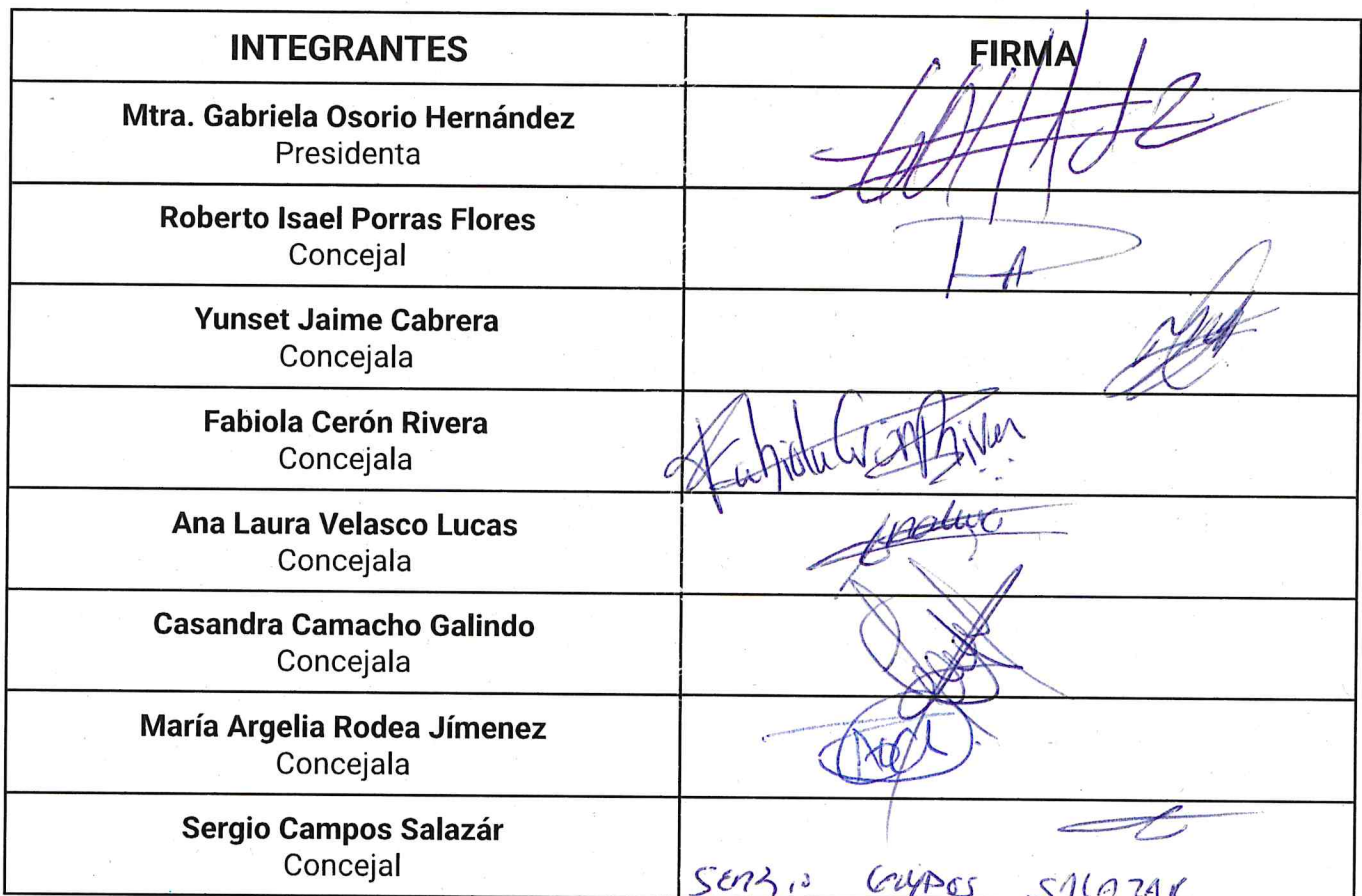 INTEGRANTES FIRMA
Mtra. Gabriela Osorio Hernández
Presidenta
Roberto Isael Porras Flores
Concejal
Yunset Jaime Cabrera
Concejala
Fabiola Cerón Rivera
Concejala
Fabiola Cerón Rivera
Ana Laura Velasco Lucas
Concejala
Casandra Camacho Galindo
Concejala
María Argelia Rodea Jímenez
Concejala
Sergio Campos Salazár
Concejal
SERGIO CAMPOS SALAZAR